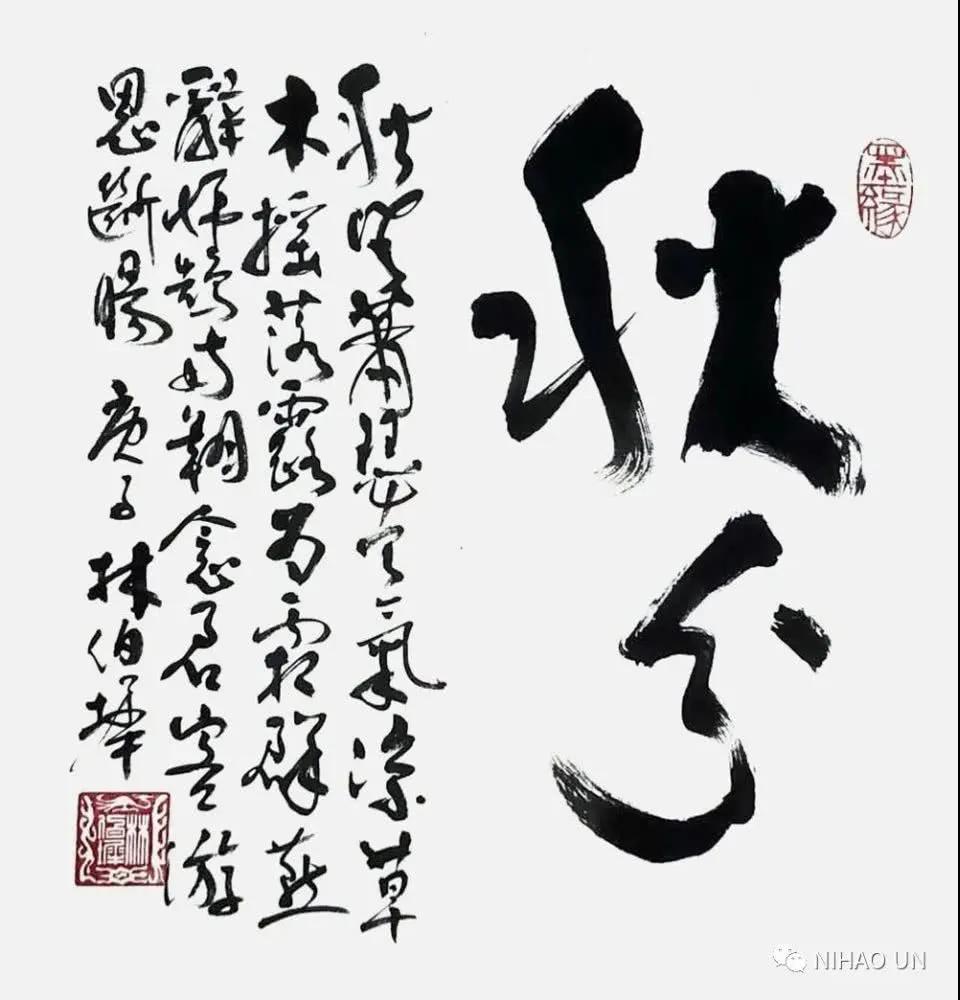 墨緣
秋分
秋風蕭瑟天氣涼草
木搖落露為霜群燕
辭歸鵠南翔念君客游
思斷腸 庚子 林伯
NIHAO UN